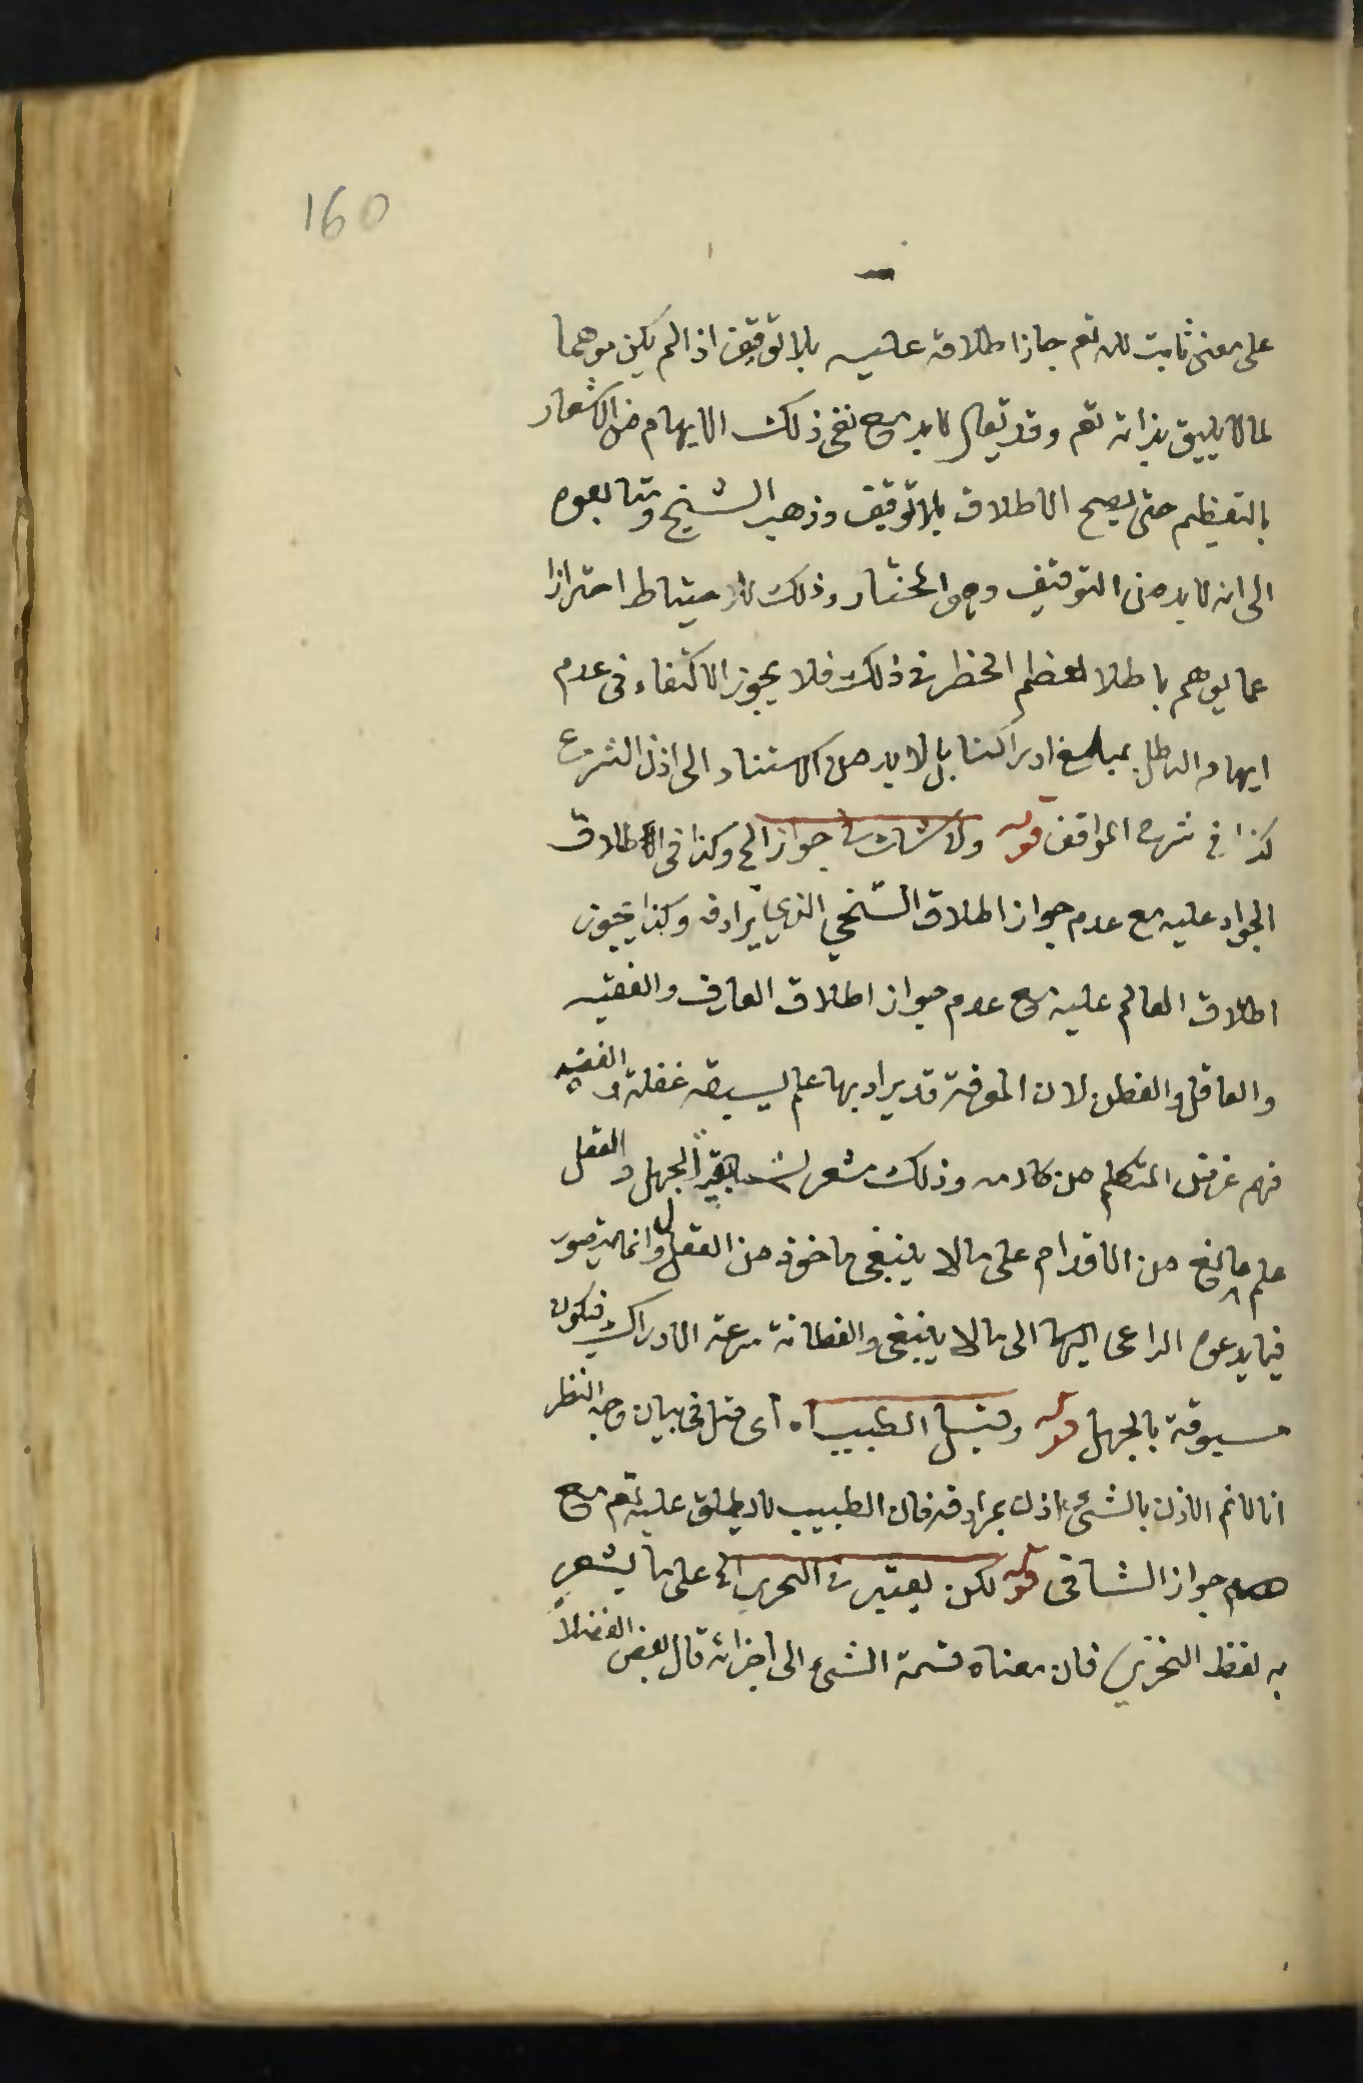 160
على معنى ثابت لله تعم جاز اطلاقه عليه بلا توقيف اذا لم يكن موهما
لما لا يليق بذاته تعم وقد يقال لا بد مع نفى ذلك الايهام من الاشعار
بالتعظيم حتى يصح الاطلاق بلا توقيف وذهب الشيخ ومتابعوه
الى انه لا بد من التوقيف وهو المختار وذلك للاحتياط احترازا
عما يوهم باطلا لعظم الخطر في ذلك فلا يجوز الاكتفاء في عدم
ايهام الباطل بمبلغ ادراكنا بل لا بد من الاستناد الى اذن الشرع
كذا في شرح المواقف قوله ولا شك في جواز الخ وكذا في اطلاق
الجواد عليه مع عدم جواز اطلاق السخي الذي يرادفه وكذا يجوز
اطلاق العالم عليه مع عدم جواز اطلاق العارف والفقيه
والعاقل والفطن لان المعرفة قد يراد بها علم يسبقه غفلة والفقيه
فهم غرض المتكلم من كلامه وذلك مشعر بسابقية الجهل والعقل
علم مانع من الاقدام على ما لا ينبغي ماخوذ من العقل وانما يتصور
فيما يدعوه الداعى اليها الى ما لا ينبغي والفطانة سرعة الادراك فيكون
مسبوقة بالجهل قوله وقيل الطبيب اه اى قيل في بيان وجه النظر
انا لا نم الاذن بالشئ اذن بمرادفه فان الطبيب لا يطلق عليه تعم مع
جواز الشافى قوله لكن يعتبر في التجزى الخ على ما يشعر
به لفظ التجزى فان معناه قسمة الشئ الى اجزائه قال بعض الفضلاء